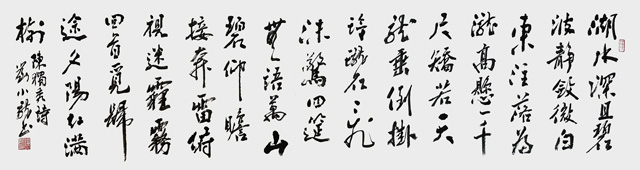 湖水深且碧
波静敛微白
東注落為
瀧高懸一千
尺矯若天
龍垂倒掛
飛
沫驚四筵
無語萬山
碧仰瞻
接奔雷俯
視迷霾霧
回首覓歸
途夕陽紅滿
樹
陳獨秀詩
劉小書